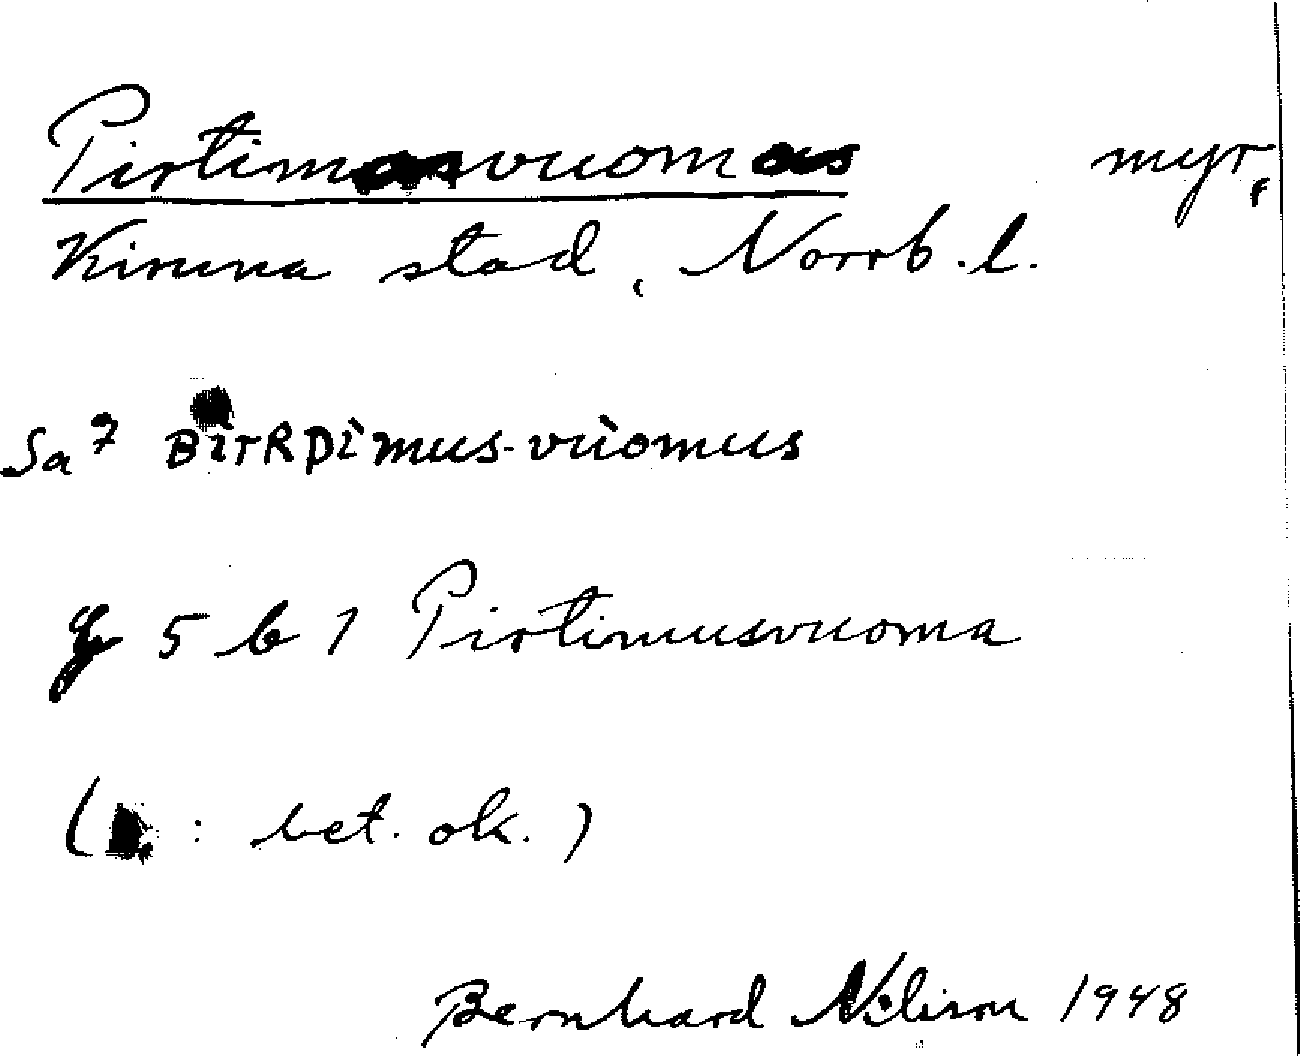 Pirtimusvuomus myr,
Kiruna stad, Norrb. l.
Sa 7 BìrRDìmus-vùomus
G 5 b 1 Pirtimusvuoma
( : bet. ok.)
Bernhard Nilsson 1948